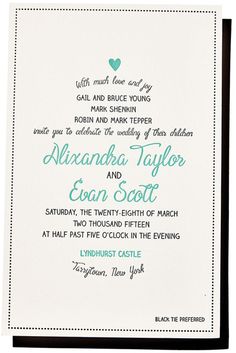 With much love and joy
GAIL AND BRUCE YOUNG
MARK SHENKIN
ROBIN AND MARK TEPPER
invite you to celebrate the wedding of their children
Alixandra Taylor
AND
Evan Scott
SATURDAY, THE TWENTY-EIGHTH OF MARCH
TWO THOUSAND FIFTEEN
AT HALF PAST FIVE O'CLOCK IN THE EVENING
LYNDHURST CASTLE
Tarrytown, New York
BLACK TIE PREFERRED